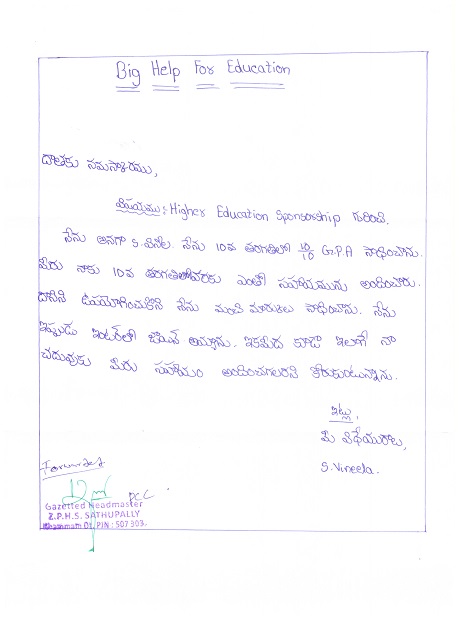 Big Help For Education
దాతకు నమస్కారము,
విషయము: Higher Education Sponsorship గురించి.
నేను అనగా S. వినీల. నేను 10వ తరగతిలో 10/10 G.P.A సాధించాను.
మీరు నాకు 10వ తరగతిలోవరకు ఎంతో సహాయమును అందించారు.
దానిని ఉపయోగించుకొని నేను మంచి మార్కులు సాధించాను. నేను
ఇప్పుడు ఇంటర్‌లో జాయిన్ అయ్యాను. ఇకమీద కూడా ఇలాగే నా
చదువుకు మీరు సహాయం అందించగలరని కోరుకుంటున్నాను.
ఇట్లు,
మీ విధేయురాలు,
S. Vineela.
Forwarded
Gazetted Headmaster
Z.P.H.S. SATHUPALLY
Khammam Dt. PIN : 507 303.